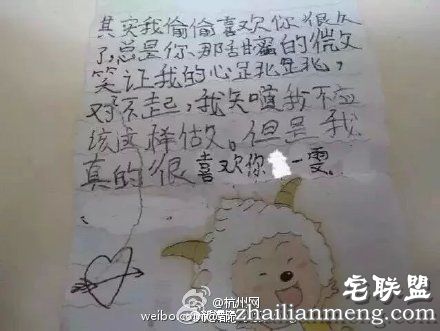 其实我偷偷喜欢你很久
了,总是你那甜蜜的微
笑让我的心
对不起,我知道我不应
该这样做。但是我
真的很喜欢你 一雯。
@杭州网
weibo.com/
宅联盟
zhailianmeng.com